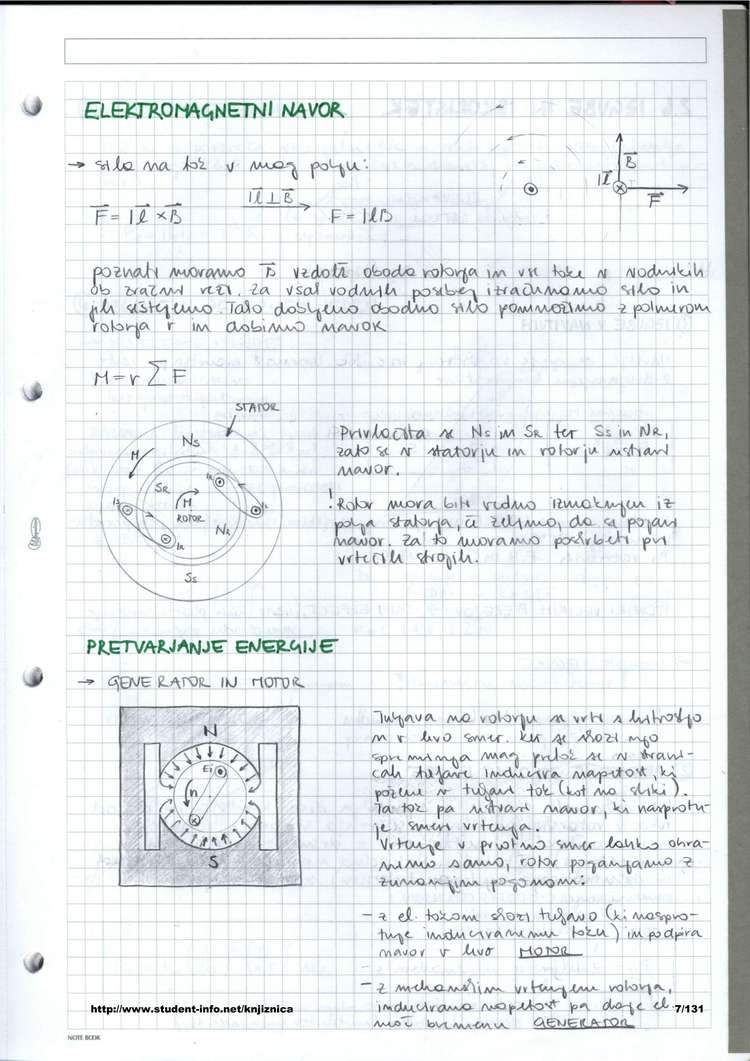 ELEKTROMAGNETNI NAVOR
→ sila na tok v mag polju:
F = I l × B   I l ⊥ B   F = I l B
B
I l
F
poznati moramo B vzdolž oboda rotorja in vse toke v vodnikih
ob zračni reži. Za vsak vodnik posebej izračunamo silo in
jih seštejemo. Tako dobljeno obodno silo pomnožimo z polmerom
rotorja r in dobimo navor
M = r ∑ F
STATOR
Ns
M
SR
M
ROTOR
NR
Ss
Privlačita se Ns in SR ter Ss in NR,
zato se v statorju in rotorju ustvari
navor.
! Rotor mora biti vedno izmaknjen iz
polja statorja, če želimo, da se pojavi
navor. Za to moramo poskrbeti pri
vrtečih strojih.
PRETVARJANJE ENERGIJE
→ GENERATOR IN MOTOR
N
Ei
n
S
Tuljava na rotorju se vrti s hitrostjo
n v levo smer. Ker se skozi njo
spreminja mag pretok se v strani-
cah tuljave inducira napetost, ki
požene v tuljavi tok (kot na sliki).
Ta tok pa ustvari navor, ki nasprotu-
je smeri vrtenja.
Vrtenje v prvotno smer lahko ohra-
nimo samo, rotor poganjamo z
zunanjim pogonom:
- z el. tokom skozi tuljavo (ki naspro-
tuje induciranemu toku) in podpira
navor v levo MOTOR
- z mehanskim vrtenjem rotorja,
inducirana napetost pa daje el.
moč bremenu GENERATOR
http://www.student-info.net/knjiznica
7/131
NOTE BOOK